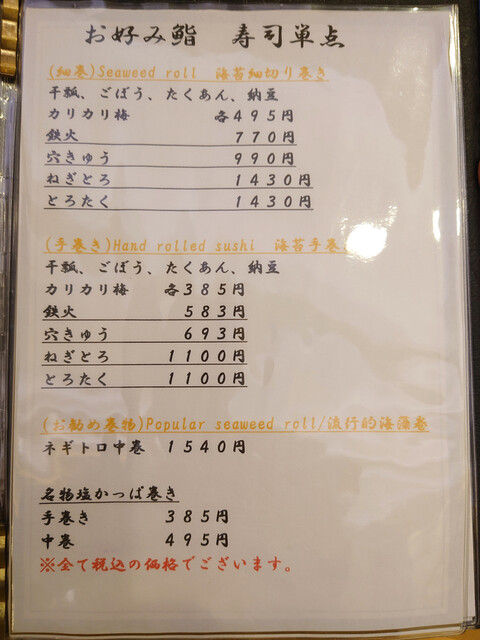 お好み鮨　寿司単点
(細巻)Seaweed roll　海苔細切り巻き
干瓢、ごぼう、たくあん、納豆
カリカリ梅　各４９５円
鉄火　７７０円
穴きゅう　９９０円
ねぎとろ　１４３０円
とろたく　１４３０円
(手巻き)Hand rolled sushi　海苔手巻
干瓢、ごぼう、たくあん、納豆
カリカリ梅　各３８５円
鉄火　５８３円
穴きゅう　６９３円
ねぎとろ　１１００円
とろたく　１１００円
(お勧め巻物)Popular seaweed roll/流行的海藻卷
ネギトロ中巻　１５４０円
名物塩かっぱ巻き
手巻き　３８５円
中巻　４９５円
※全て税込の価格でございます。